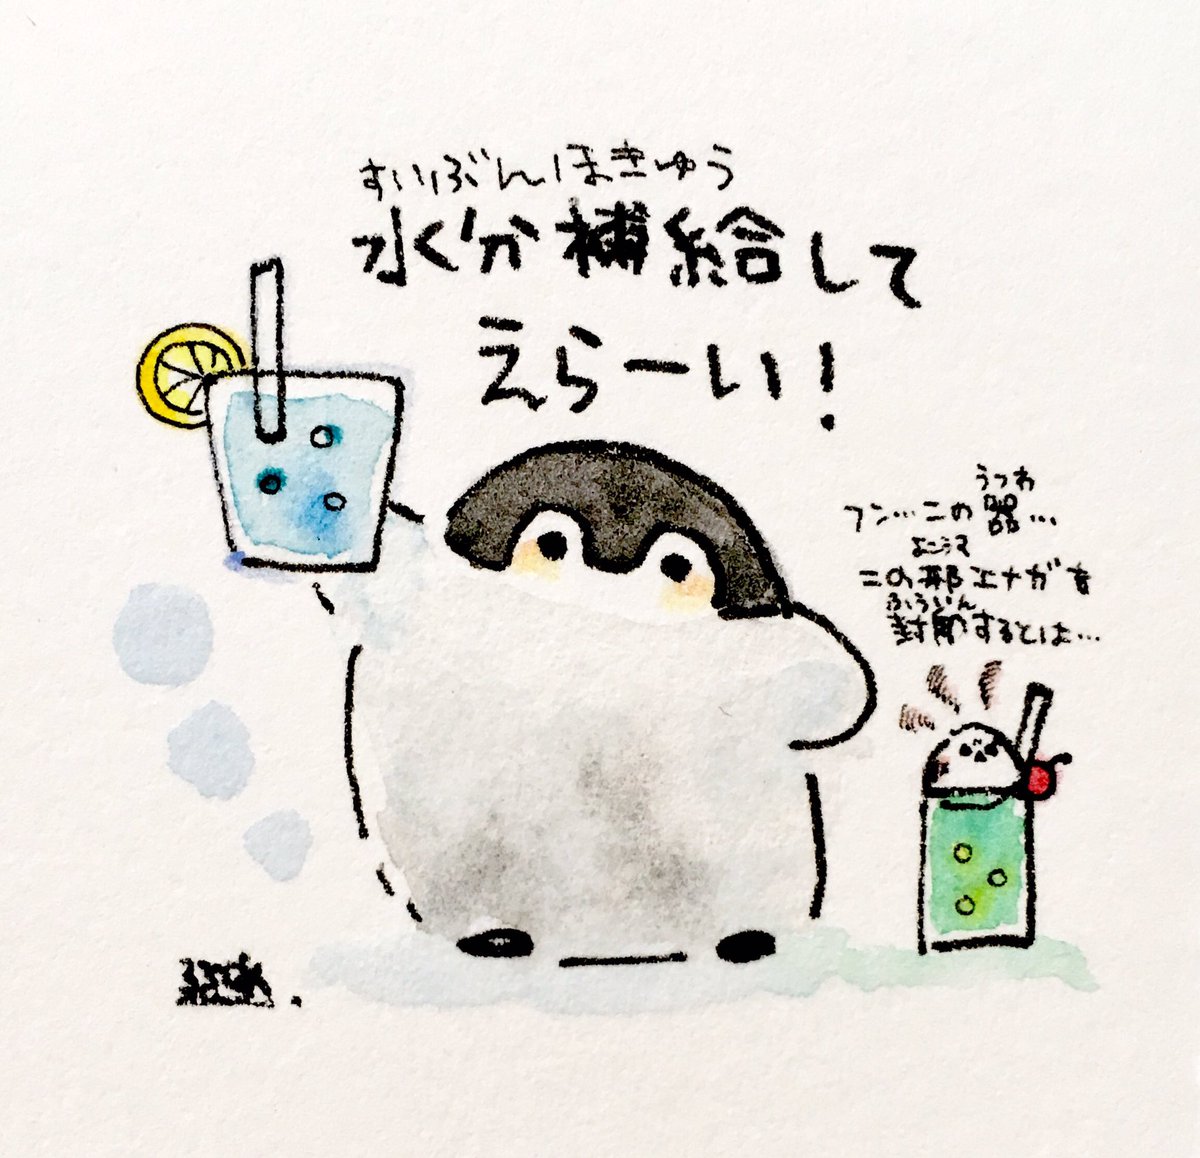 すいぶんほきゅう
水分補給して
えらーい！
うつわ
フン…この器…
よこうで
この邪エナガを
ふういん
封印するとは…
るるてあ